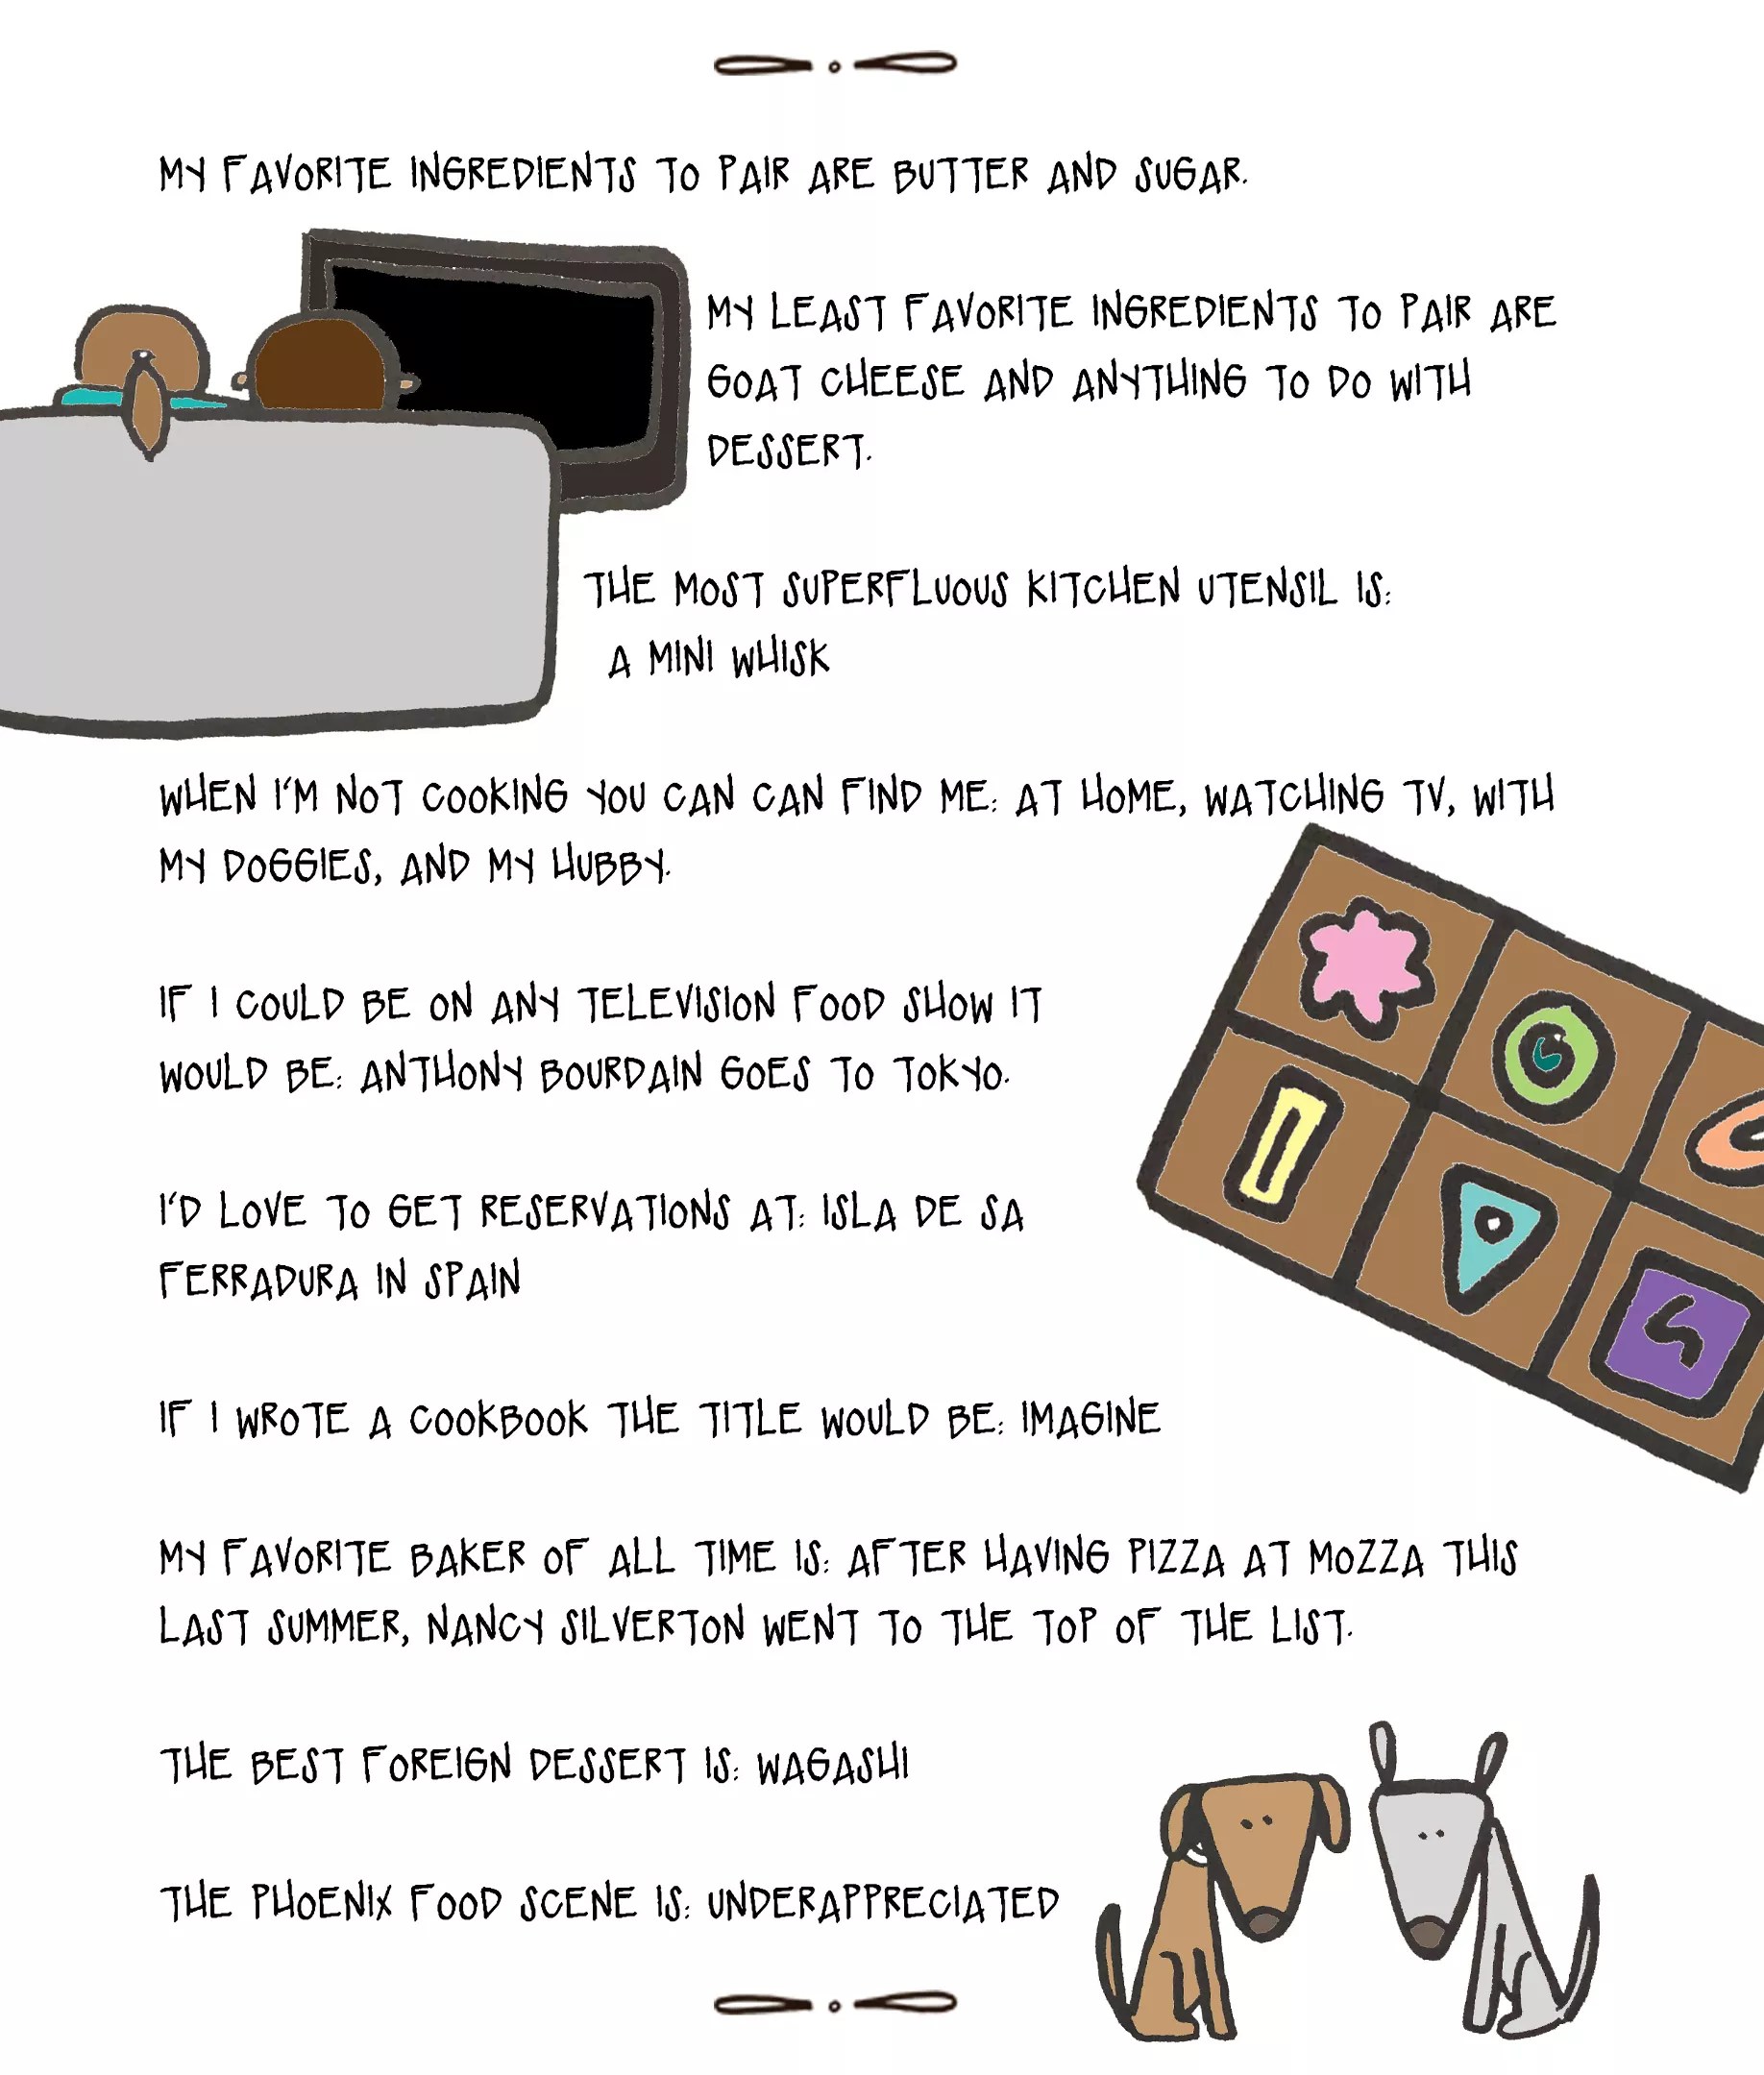 MY FAVORITE INGREDIENTS TO PAIR ARE BUTTER AND SUGAR.
MY LEAST FAVORITE INGREDIENTS TO PAIR ARE
GOAT CHEESE AND ANYTHING TO DO WITH
DESSERT.
THE MOST SUPERFLUOUS KITCHEN UTENSIL IS:
A MINI WHISK
WHEN I'M NOT COOKING YOU CAN CAN FIND ME: AT HOME, WATCHING TV, WITH
MY DOGGIES, AND MY HUBBY.
IF I COULD BE ON ANY TELEVISION FOOD SHOW IT
WOULD BE: ANTHONY BOURDAIN GOES TO TOKYO.
I'D LOVE TO GET RESERVATIONS AT: ISLA DE SA
FERRADURA IN SPAIN
IF I WROTE A COOKBOOK THE TITLE WOULD BE: IMAGINE
MY FAVORITE BAKER OF ALL TIME IS: AFTER HAVING PIZZA AT MOZZA THIS
LAST SUMMER, NANCY SILVERTON WENT TO THE TOP OF THE LIST.
THE BEST FOREIGN DESSERT IS: WAGASHI
THE PHOENIX FOOD SCENE IS: UNDERAPPRECIATED